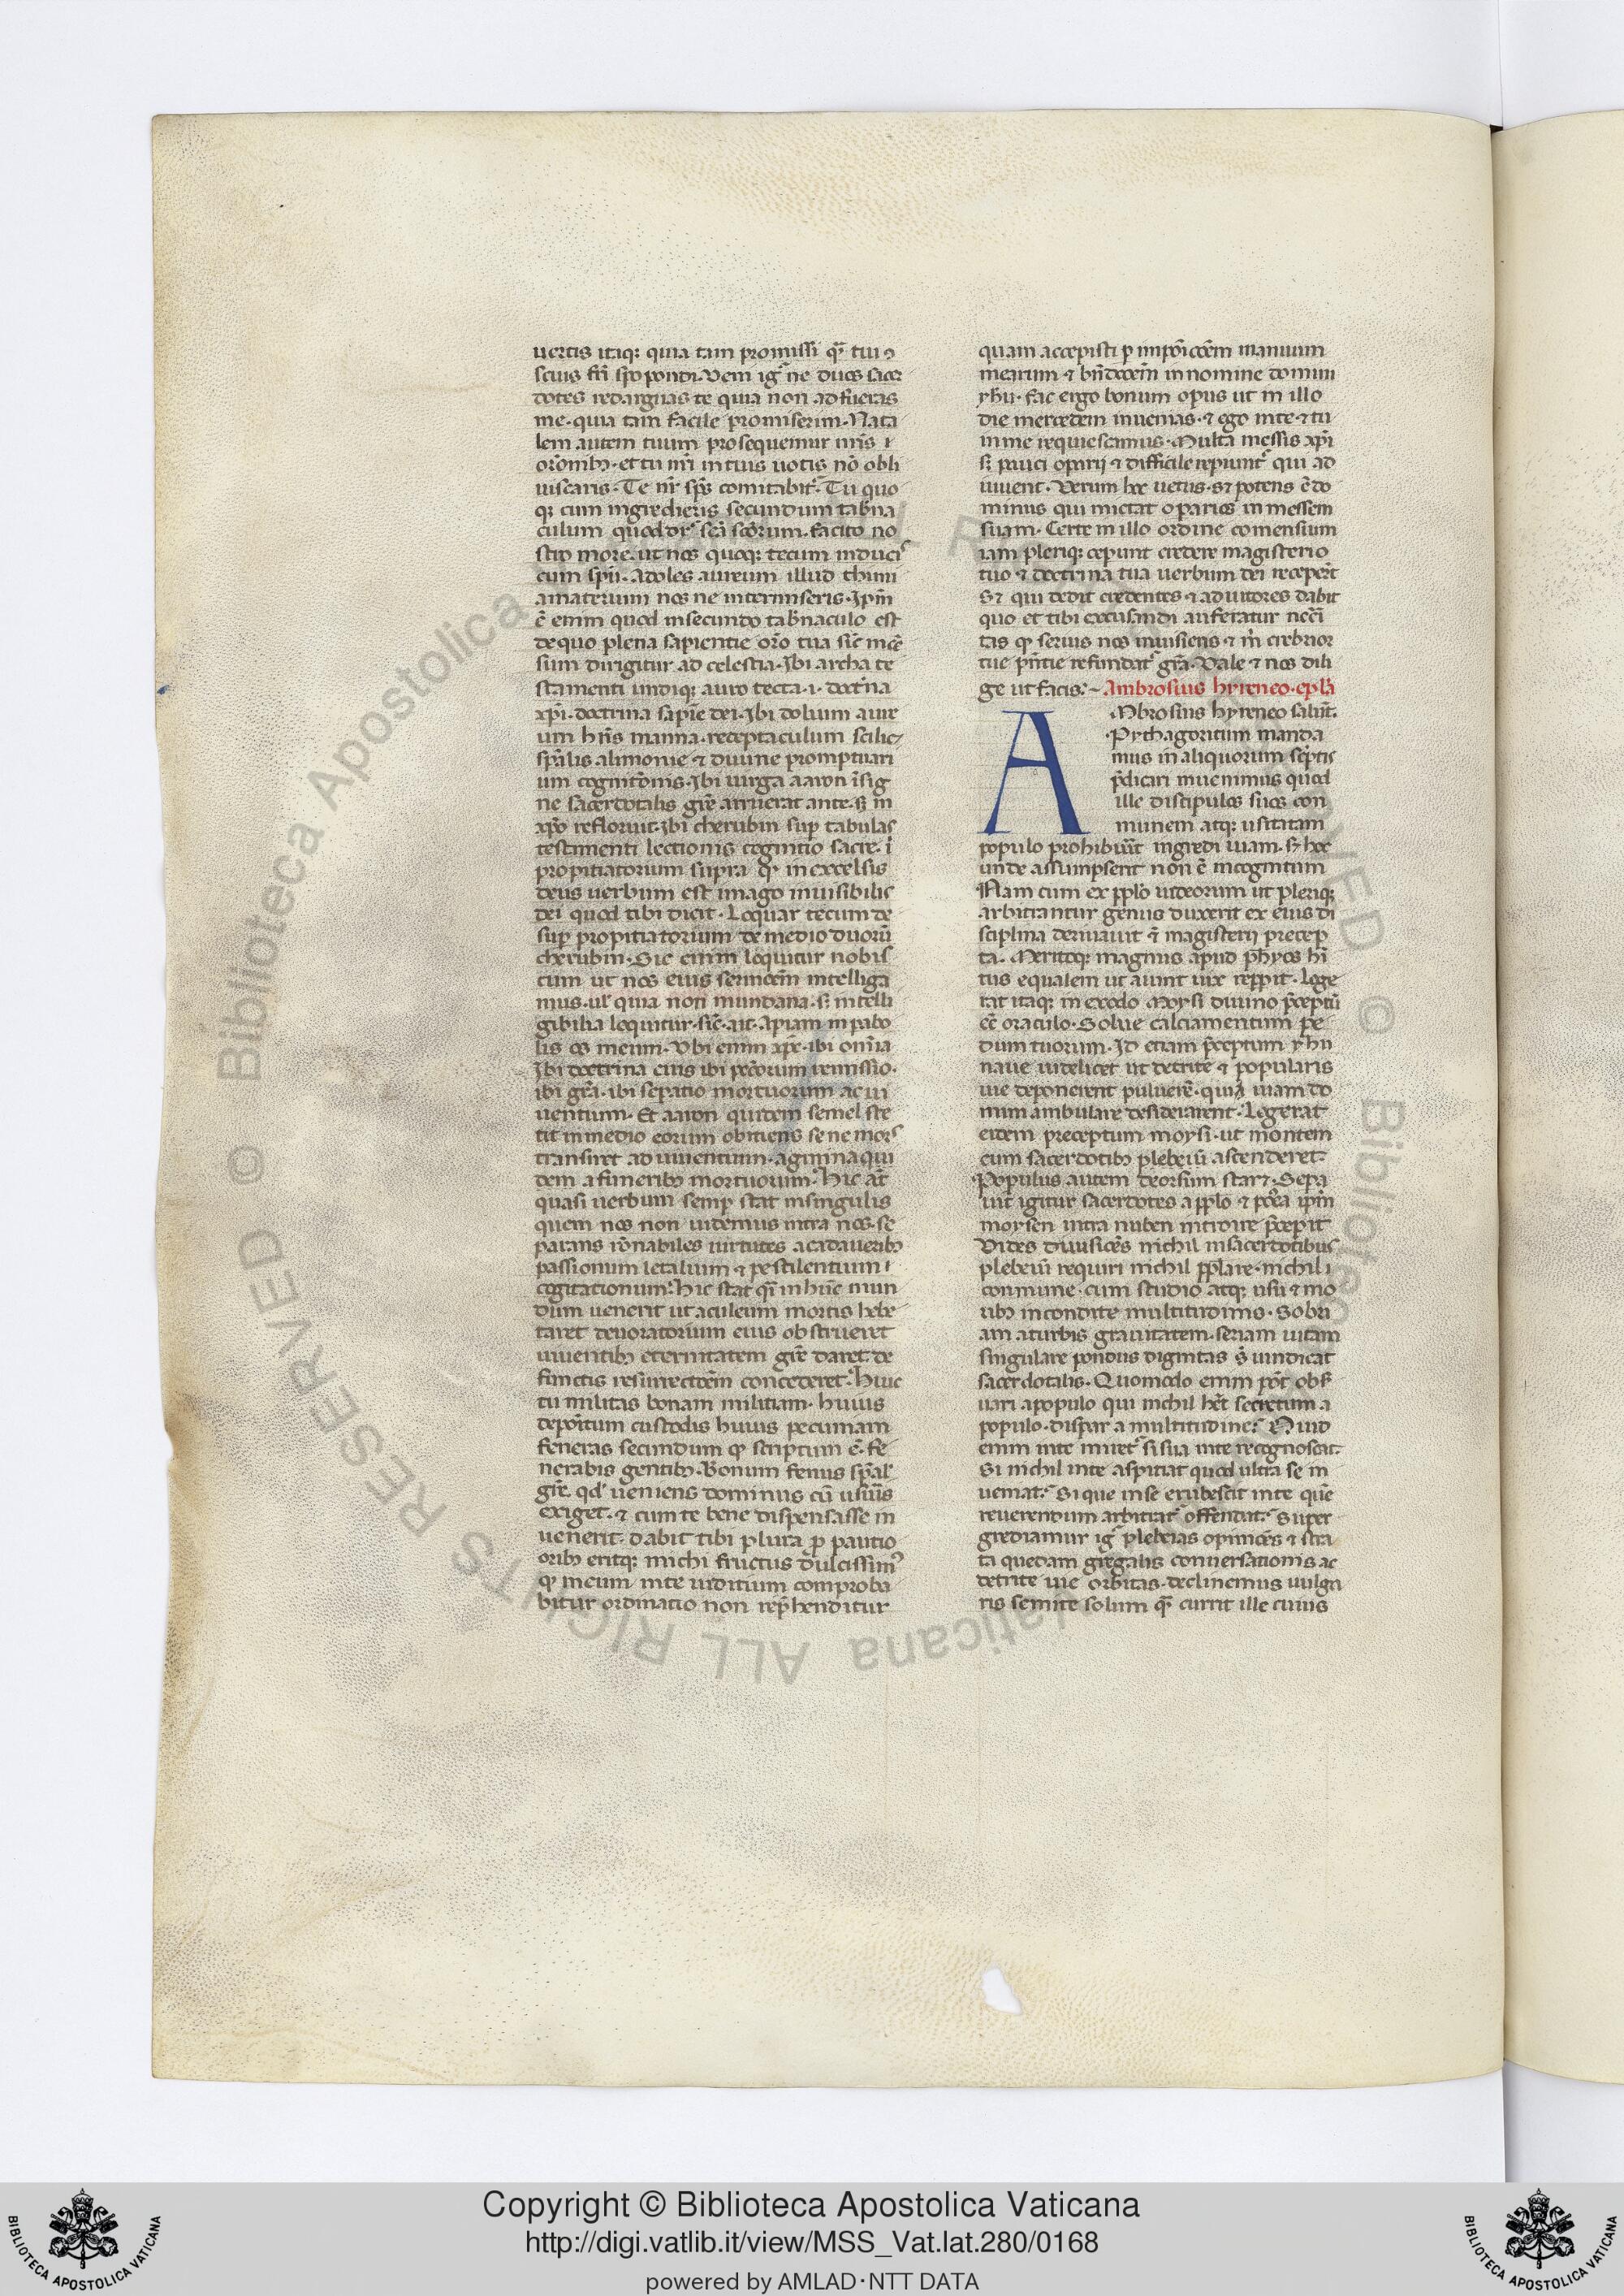 uertis itaqꝫ quia tam promissi qͣ tui ↄ
scius fr̄i spopondi. Vem igͬ ne duos sacer
dotes redarguas te quia non adfueras
me. quia tam facile promiserim. Nata
lem autem tuum prosequemur nr̄is ı
or̄onibꝫ. et tu nr̄i in tuis uotis nō obli
uiscaris. Te nr̄ sp̄s comitabitͬ. Tu quo
qꝫ cum ingredieris secundum tab̄na
culum quod dr̄ sc̄a sc̄orum. facito no
stro more. ut nos quoqꝫ tecum induci͛
cum sp̄u. adoles aureum illud thimi
amaterium nos ne intermiseris. Ip̄m
ē enim quod in secundo tab̄naculo est
de quo plena sapientie or̄o tua sic̄ incē
sum dirigitur ad celestia. Ibi archa te
stamenti undiqꝫ auro tecta .i. doct̓na
xp̄i. doctrina sapīe dei. Ibi dolium aure
um hn̄s manna. receptaculum scilicꝫ
sp̄alis alimonie ⁊ diuine promptuari
um cognitōnis. Ibi uirga aaron īsig
ne sacerdotalis gr̄e aruerat ante. sꝫ in
xp̄o refloruit. Ibi cherubin suꝑ tabulas
testimenti lectionis cognitio sacre. ı
propitiatorium supra qͦ in excelsis
deus uerbum est imago inuisibilis
dei quod tibi dicit. Loquar tecum de
suꝑ propitiatorium de medio duorū
cherubin. Sic enim loquitur nobis
cum ut nos eius sermōēm intelliga
mus. ul̄ quia non mundana. sꝫ intelli
gibilia loquitur. sic̄. ait. Apiam in pabo
lis os meum. Vbi enim xp̄c. ibi om̄ia
Ibi doctrina eius ibi pcc̄orum remissio.
ibi gr̄a. ibi seꝑatio mortuorum ac ui
uentium. Et aaron quidem semel ste
tit in medio eorum obiciens se ne mors
transiret ad uiuentium. agmina qui
dem a funeribꝫ mortuorum. Hic āt
quasi uerbum semꝑ stat in singulis
quem nos non uidemus intra nos. se
parans rōnabiles uirtutes a cadaueribꝫ
passionum letalium ⁊ pestilentium ı
cogitationum. Hic stat qͣ in hūc mun
dum uenerit ut aculeum mortis hebe
taret deuoratorium eius obstrueret
uiuentibꝫ eternitatem gr̄e daret. de
functis resurrectōēm concederet. Huic
tu militas bonam militiam. huius
depositum custodis huius pecuniam
feneras secundum qͦ scriptum ē. fe
nerabis gentibꝫ. Bonum fenus sp̄al̓
gr̄e. qd̄ ueniens dominus cū usuris
exiget. ⁊ cum te bene dispensasse in
uenerit. dabit tibi plura ꝓ paucio
oribꝫ eritqꝫ michi fructus dulcissim᷒
qͦ meum in te iuditium comproba
bitur ordinatio non rep̄henditur
quam accepisti ꝑ impōicōem manuum
mearum ⁊ bn̄dōcēm in nomine domini
yhū. fac ergo bonum opus ut in illo
die mercedem inuenias. ⁊ ego in te ⁊ tu
in me requiescamus. Multa messis xp̄i
sꝫ pauci opārij ⁊ difficile repiuntͬ qui ad
iuuent. Verum hoc uetus. sꝫ potens ē do
minus qui mictat operarios in messem
suam. Certe in illo ordine comensium
iam pleriqꝫ ceꝑunt credere magisterio
tuo ⁊ doctrina tua uerbum dei receperūt
Sꝫ qui dedit credentes ⁊ adiutores dabit
quo et tibi excusandi auferatur necc̄i
tas qͦ serius nos inuisiens ⁊ m̄ crebrior
tue pn̄tie refundatͬ gr̄a. Vale ⁊ nos dili
ge ut facis:~ Ambrosius hyreneo. epl̄a
AMbrosius hyreneo salut̄.
Pythagoricum manda
mus in aliquorum sc̓ptis
p̄dicari inuenimus quod
ille discipulos suos con
munem atqꝫ usitatam
populo prohibuit ingredi uiam. sꝫ hoc
unde assumpserit non ē incognitum
Nam cum ex pp̄lo iudeorum ut pleriqꝫ
arbitrantur genus duxerit ex eius di
sciplina deriuauit ⁊ magisterij precep
ta. Meritoqꝫ magnus apud ph̄ycos hi
tus equalem ut aiunt uix reꝑꝑit. Lege
rat itaqꝫ in exodo Moysi diuino p̄ceptū
eē oraculo. Solue calciamentum pe
dum tuorum. Id etiam p̄ceptum yhū
naue uidelicet ut detrite ⁊ popularis
uie deponerent puluerē. quia uiam do
mum ambulare desiderarent. Legerat
eidem preceptum moysi. ut montem
cum sacerdotibꝫ plebeiū ascenderet.
Populus autem deorsum staret. Sepa
uit igitur sacerdotes a pp̄lo ⁊ postea ip̄m
moysen intra nuben introire p̄cepit
Vides diuisiōēs nichil in sacerdotibus
plebeiū requiri nichil pp̄lare. nichil ı
conmune. cum studio atqꝫ usu ⁊ mo
ribꝫ incondite multitudinis. Sobri
am a turbis grauitatem. seriam uitam
singulare pondus dignitas s̄ uindicat
sacerdotalis. Quomodo enim pōt obs̓
uari a populo qui nichil hēt secretum a
populo. dispar a multitudine: Quid
enim in te miret̓ si sua in te recognoscat.
Si nichil in te aspiciat quod ultra se in
ueniat. Si que in se erubescit in te quē
reuerendum arbitratͬ offendat. Super
grediamur igͬ plebeias opiniōēs ⁊ stra
ta quedam gregalis conuersationis ac
detrite uie orbitas. declinemus uulga
ris semite solum qͣ currit ille cuius
Copyright © Biblioteca Apostolica Vaticana
http://digi.vatlib.it/view/MSS_Vat.lat.280/0168
powered by AMLAD·NTT DATA
BIBLIOTECA APOSTOLICA VATICANA
BIBLIOTECA APOSTOLICA VATICANA